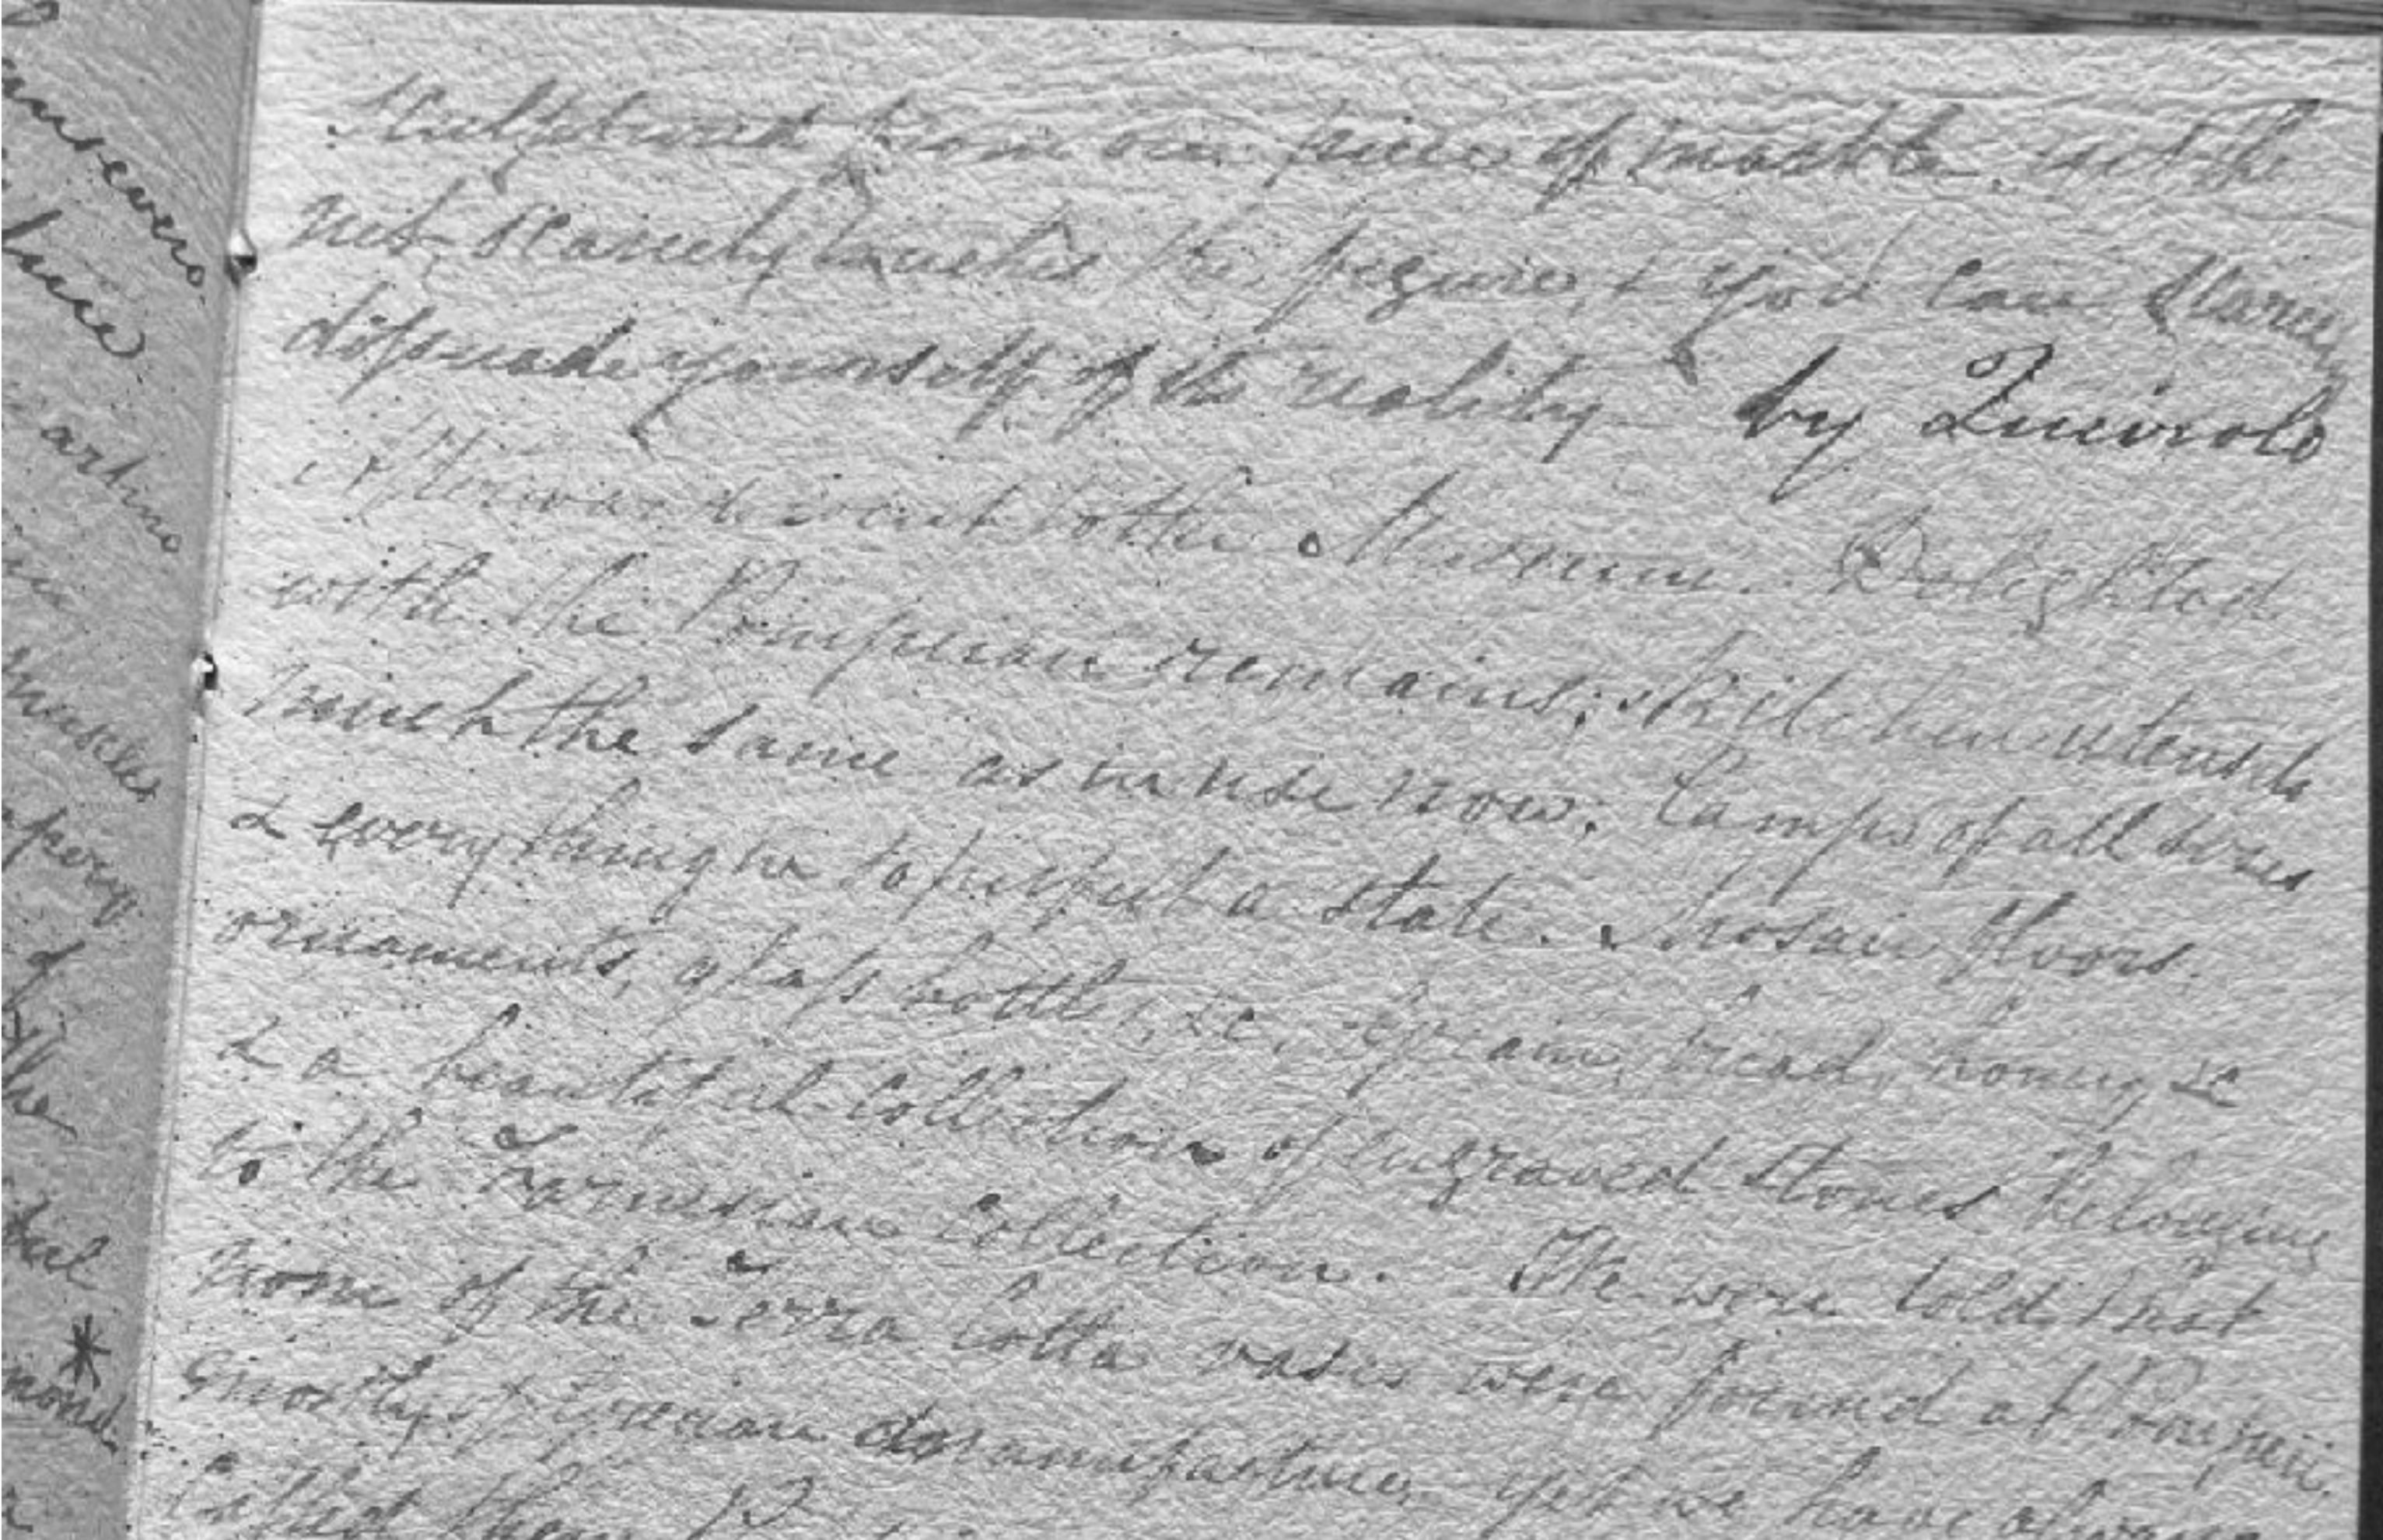 sansevero
artino
muscles
the
*
Sculptured from one piece of marble. and the
net scarcely touches the figure, & you can scarcely
dissuade yourself of the reality by Queirolo
Afterwards went to the Museum. Delighted
with the Pompeian remains; Kitchen utensils
much the same as in use now. Lamps of all sizes
& everything in so perfect a state. Mosaic floors.
ornaments, glass bottles, &c, Grain, bread, honey &c
& a beautiful collection of engraved stones belonging
to the Farnesian Collection. We were told that
none of the Terra Cotta vases were found at Pompeii.
mostly of Grecian manufacture, yet we have always
Called them